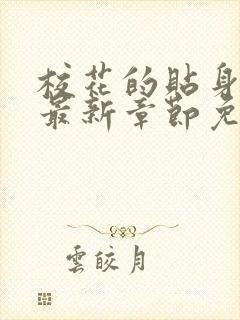 校花的贴身
最新章節免
雲皎月